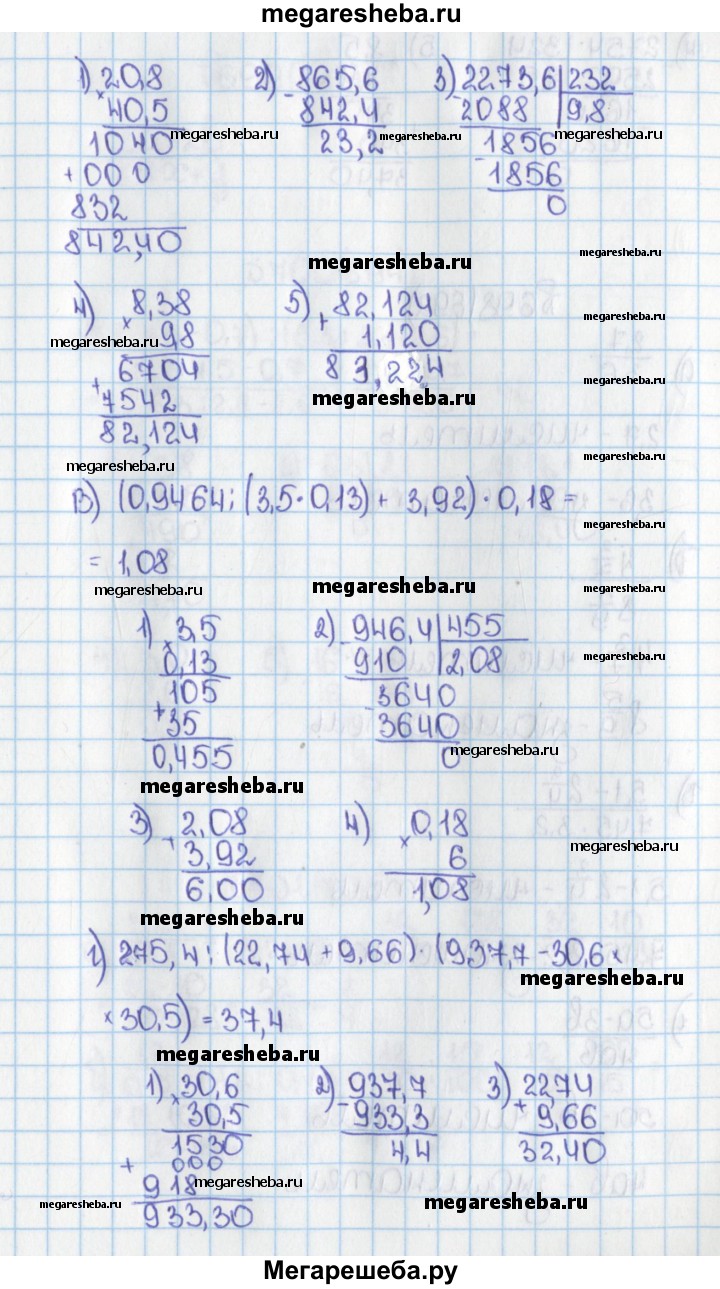 megaresheba.ru
1) 20,8 2) 865,6 3) 2273,6 | 232
× 40,5 - 842,4 - 2088 9,8
1040 megaresheba.ru 23,2 megaresheba.ru 1856 megaresheba.ru
+ 000 - 1856
832 0
842,40 megaresheba.ru megaresheba.ru
4) 8,38 5) 82,124 megaresheba.ru
megaresheba.ru × 98 + 1,120
6704 83,224 megaresheba.ru
+ 7542 megaresheba.ru
82,124
megaresheba.ru megaresheba.ru
В) (0,9464 : (3,5 · 0,13) + 3,92) · 0,18 =
megaresheba.ru
= 1,08
megaresheba.ru megaresheba.ru megaresheba.ru
1) 3,5 2) 946,4 | 455
× 0,13 - 910 2,08 megaresheba.ru
105 - 3640
+ 35 3640
0,455 0 megaresheba.ru
megaresheba.ru
3) 2,08 4) 0,18
+ 3,92 × 6 megaresheba.ru
6,00 1,08
megaresheba.ru
г) 275,4 : (22,74 + 9,66) · (937,7 - 30,6 ×
megaresheba.ru
× 30,5) = 37,4
megaresheba.ru
1) 30,6 2) 937,7 3) 22,74
× 30,5 - 933,3 + 9,66
1530 4,4 32,40
+ 000
918 megaresheba.ru
megaresheba.ru 933,30 megaresheba.ru
Мегарешеба.ру